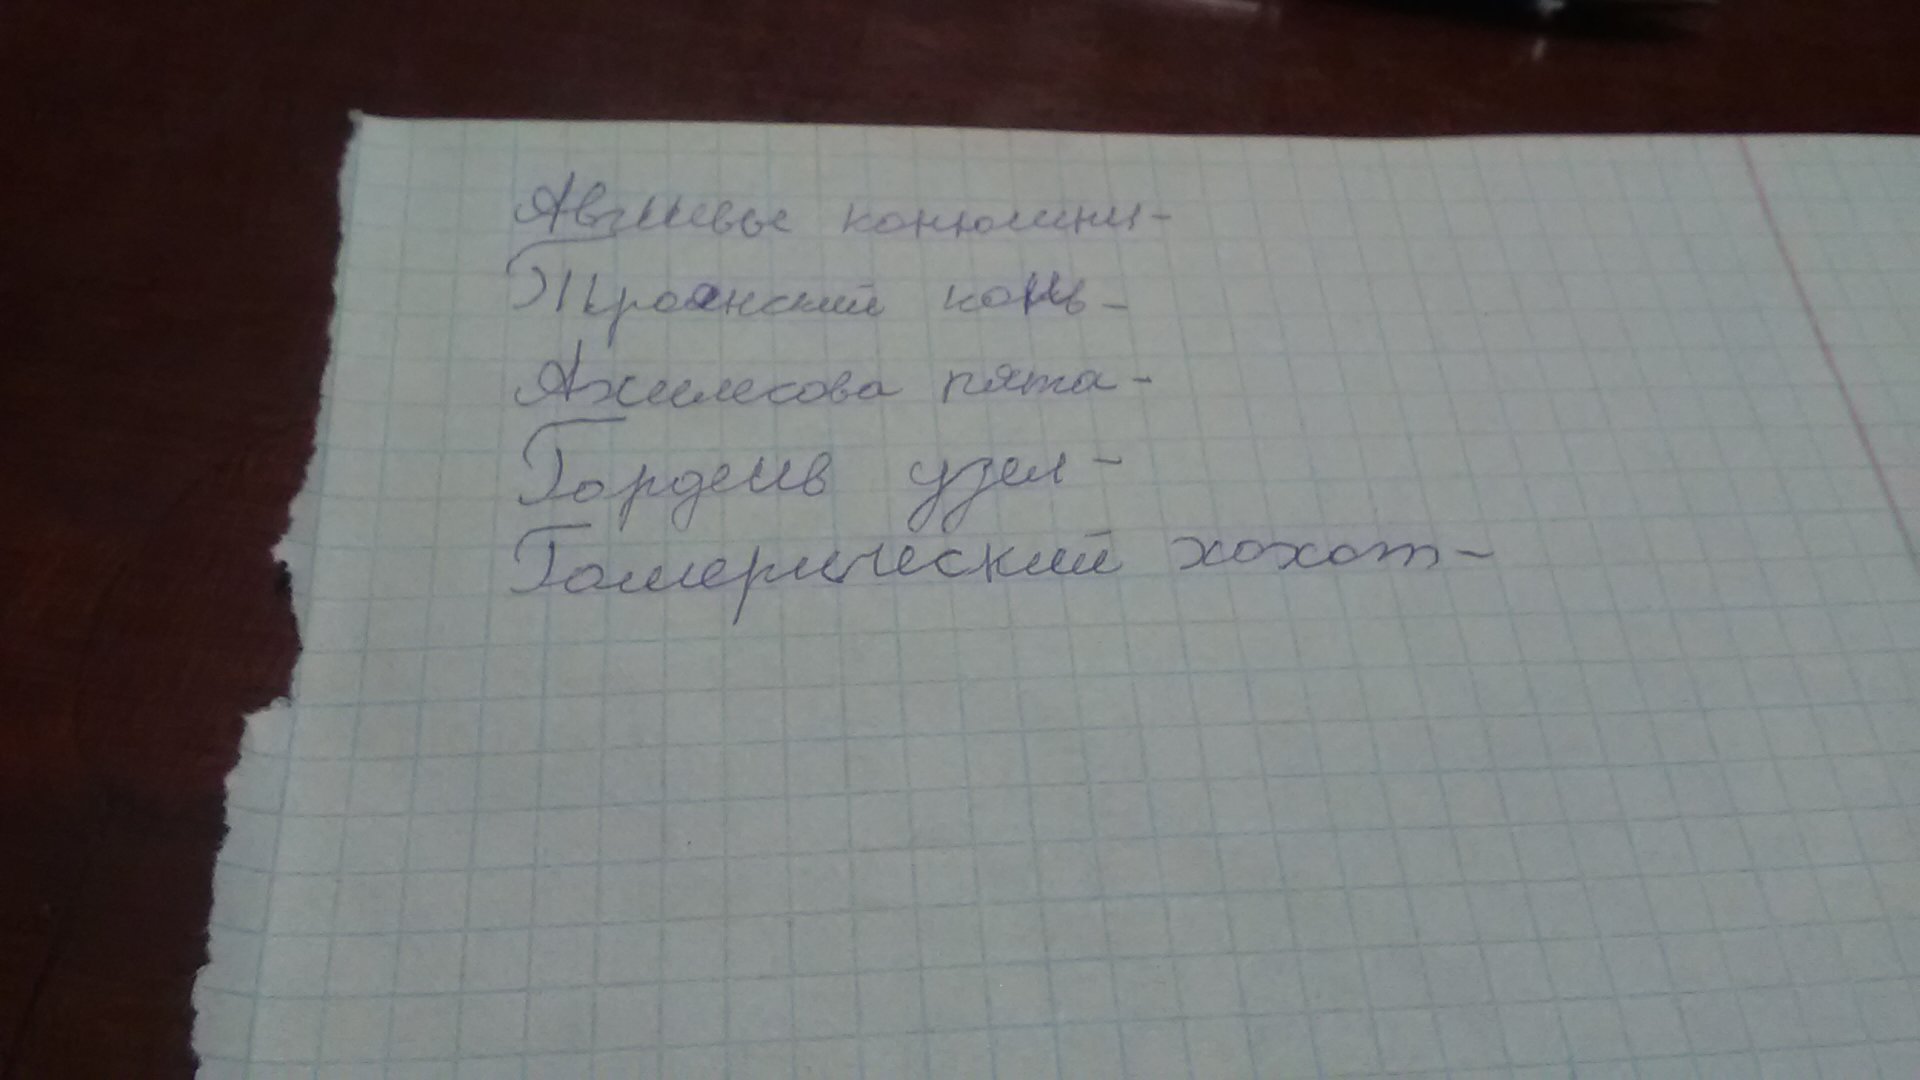 Авгиевы конюшни-
Троянский конь-
Ахилесова пята-
Гордеив узел-
Гомерический хохот-